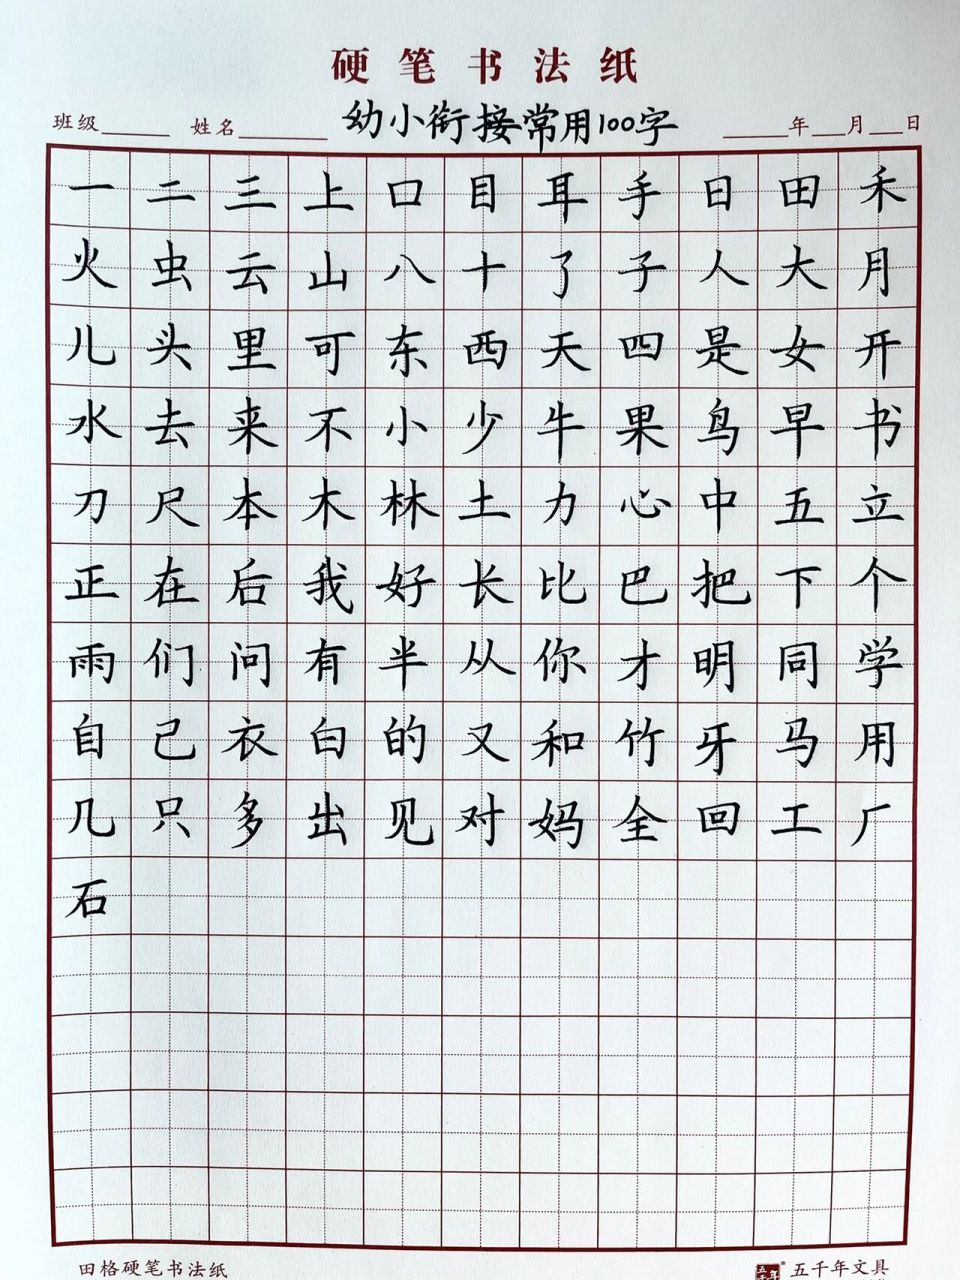 硬笔书法纸
班级 姓名 幼小衔接常用100字 年 月 日
一 二 三 上 口 目 耳 手 日 田 禾
火 虫 云 山 八 十 了 子 人 大 月
儿 头 里 可 东 西 天 四 是 女 开
水 去 来 不 小 少 牛 果 鸟 早 书
刀 尺 本 木 林 土 力 心 中 五 立
正 在 后 我 好 长 比 巴 把 下 个
雨 们 问 有 半 从 你 才 明 同 学
自 己 衣 白 的 又 和 竹 牙 马 用
几 只 多 出 见 对 妈 全 回 工 厂
石
田格硬笔书法纸 五千年 五千年文具